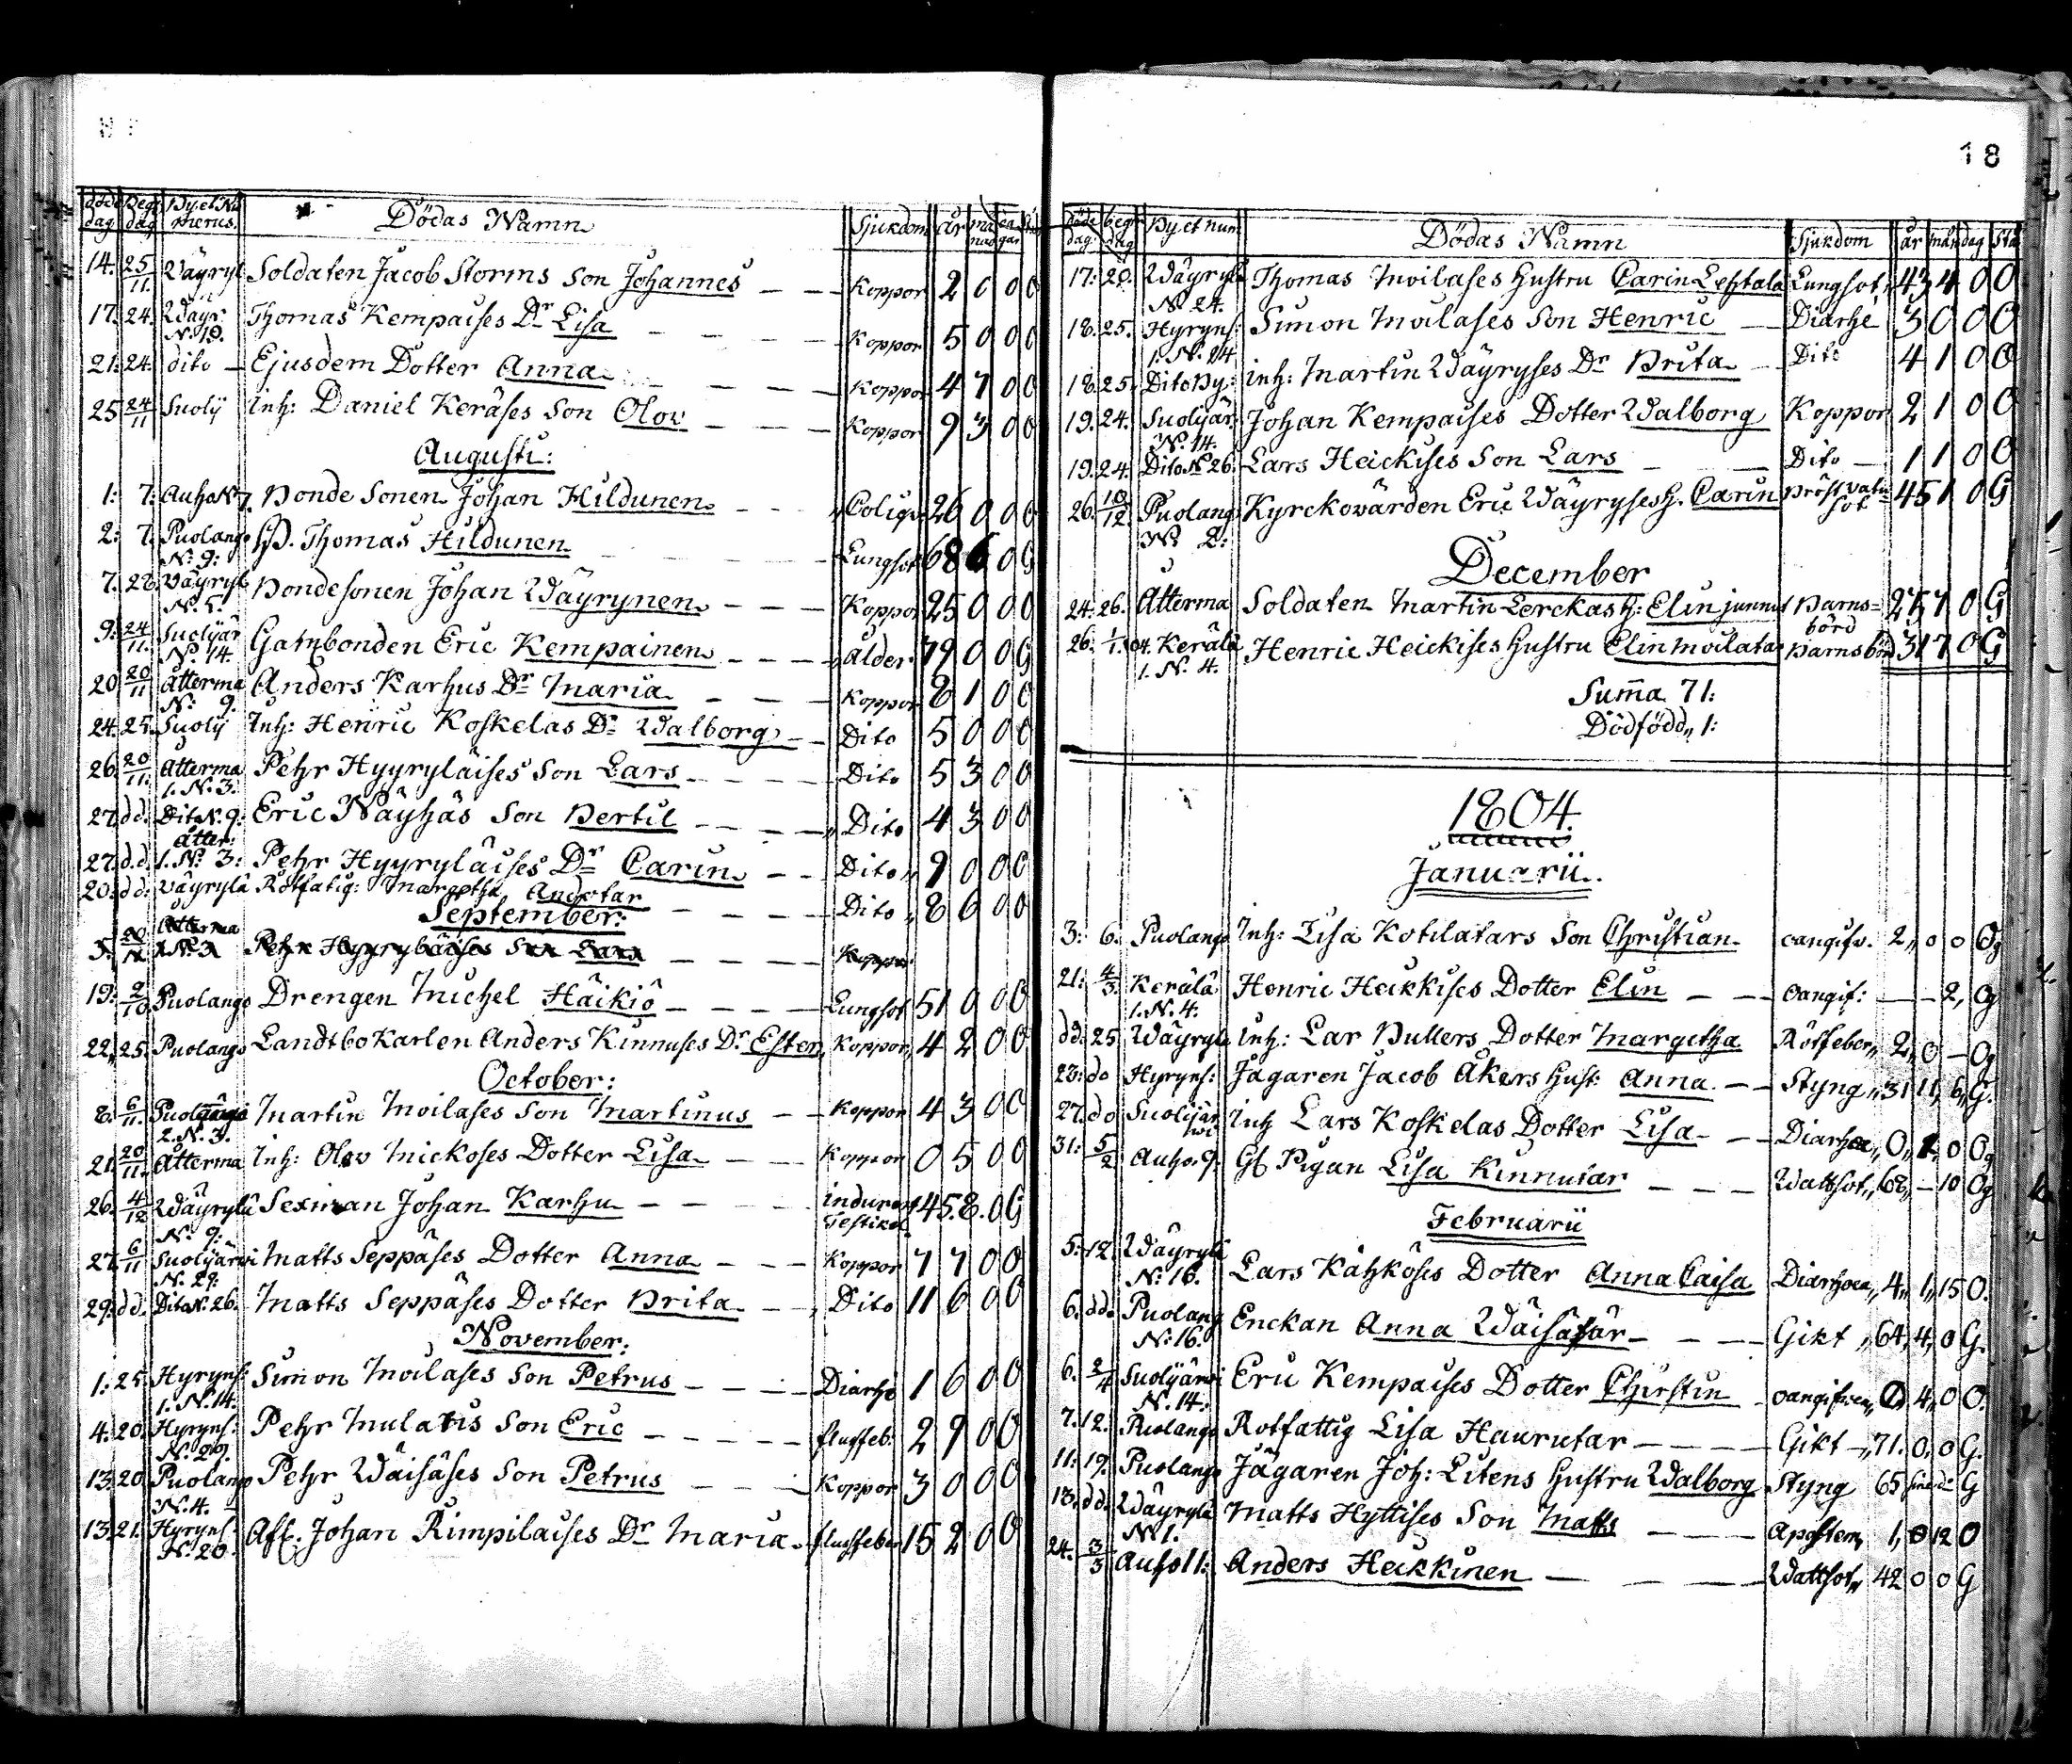 18
döds dag Begr dag By et Nu merus. Dödas Namn Sjukdom år må nad da gar
14. 25/11 Wäyryl Soldaten Jacob Storms Son Johannes Koppor 2 0 0 0
17. 24. Wäyr. N:10. Thomas Kempaises Dr Lisa Koppor 5 0 0 0
21. 24. dito Ejusdem Dotter Anna Koppor 4 7 0 0
25 24/11 Suoly inh: Daniel Keräses Son Olov Koppor 9 3 0 0
Augusti:
1: 7: Auho N 7. Bonde Sonen Johan Hildunen Colique 26 0 0 0
2: 7. Puolango N: 9: GB. Thomas Hildunen Lungsot 68 6 0 G
7. 28. Väyryl N. 5. Bondesonen Johan Wäyrynen Koppor 25 0 0 0
9: 24/11. Suolijär N. 14. Gamlbonden Eric Kempainen ålder 79 0 0 G
20 20/11 Atterma N: 9. Anders Karhus Dr Maria Koppor 8 1 0 0
24. 25. Suoly Inh: Henric Koskelas Dr Walborg Dito 5 0 0 0
26. 20/11. Atterma 1. N. 3. Pehr Hyyryläises Son Lars Dito 5 3 0 0
27. dd. Dit N. 9: Eric Näyhäs Son Bertil Dito 4 3 0 0
27. d.d. Atter: 1. N: 3: Pehr Hyyryläises Dr Carin Dito 9 0 0 0
20: dd: Väyrylä Rotfatig: Margetha Andotar Dito 8 6 0 0
September:
5. Atterma 1. N. 3 Pehr Hyyryläises Son Lars Koppor
19: 2/10 Puolango Drengen Michel Häikiö Lungsot 51 0 0 0
22. 25. Puolango Landtbokarlen Anders Kinnuses Dr. Ester Koppor 4 2 0 0
October:
8. 6/11. Puolango 2. N. 3. Martin Moilases Son Martinus Koppor 4 3 0 0
21 20/11. Atterma Inh: Olov Mickoses Dotter Lisa Koppor 0 5 0 0
26. 4/12 Wäyrylä N: 9: Sexman Johan Karhu indurat Testikel 45. 8. 0 G
27. 6/11 Suolijärvi N. 29: Matts Seppäses Dotter Anna Koppor 7 7 0 0
29. dd. Dito N: 26. Matts Seppäses Dotter Brita Dito 11 6 0 0
November:
1: 25. Hyryns: 1. N. 14. Simon Moilases Son Petrus Diarhé 1 6 0 0
4. 20. Hyryns. N. 29. Pehr Mulatis Son Eric flussfeb: 2 9 0 0
13. 20 Puolango N. 4. Pehr Wäisäses Son Petrus Koppor 3 0 0 0
13. 21. Hyryns: N. 20. Afl. Johan Rimpiläises Dr Maria flussfeber 15 2 0 0
döds dag: begr dag By et num Dödas Namn Sjukdom år mån dag
17: 20. Wäyryl N. 24. Thomas Moilases hustru Carin Leptala Lungsot 43 4 0 0
18. 25. Hyryns: 1. N. 14 Simon Moilases Son Henric Diarhé 3 0 0 0
18 25. Dito By: inh: Martin Wäyryses Dr Brita Dito 4 1 0 0
19. 24. Suolijär N. 14. Johan Kempaises Dotter Walborg Koppor 2 1 0 0
19. 24. Dito N. 26. Lars Heickises Son Lars Dito 1 1 0 0
26. 10/12. Puolang: N 2: Kyrckovärden Eric Wäyryses h. Carin Bröstvatusot 45 1 0 G
December
24. 26. Atterma Soldaten Martin Lerckas h: Elin Barns=börd 25 7 0 G
26. 1/1. 04. Kerälä 1. N. 4. Henric Heickises hustru Elin Moilatar Barnsbörd 31 7 0 G
Suma 71:
Dödfödd„ 1:
1804.
Januarii.
3: 6. Puolango Inh: Lisa Kotilatars Son Christian oangifv. 2„ 0 0 Og
21: 4/3. Kerälä 1. N. 4. Henric Heikkises Dotter Elin oangif: — 2, Og
dd. 25 Wäyryl inh: Lar Bullers Dotter Margetha Rötfeber„ 2„ 0 — Og
23: do Hyryns: Jägaren Jacob Åkers hust: Anna Styng„ 31 11, 6„ G.
27. do Suolijär Inh Lars Koskelas Dotter Lisa Diarhoea„ 0„ 1„ 0 Og
31: 5/2 Auho. 9. Gl Pigan Lisa Kinnutar Wattsot„ 68„ — 10 Og
Februarii
5: 12. Wäyrylä N: 16. Lars Kähköses Dotter Anna Caisa Diarhoea„ 4„ 1„ 15 0.
6. dd. Puolang N: 16. Enckan Anna Wäisätär Gikt „ 64, 4, 0 G.
6. 2/4 Suolijärvi N. 14. Eric Kempaises Dotter Christin oangifven„ 0 4„ 0 0.
7. 12. Puolango Rotfattig Lisa Haurutar Gikt 71. 0„ 0 G.
11: 19. Puolango Jägaren Joh: Litens hustru Walborg Styng 65 G
13. dd. Wäyrylä N 1. Matts Hyttises Son Matts Apostem„ 1, 0 12 0
24. 3/3 Auho 11: Anders Heikkinen Wattsot„ 42 0 0 G